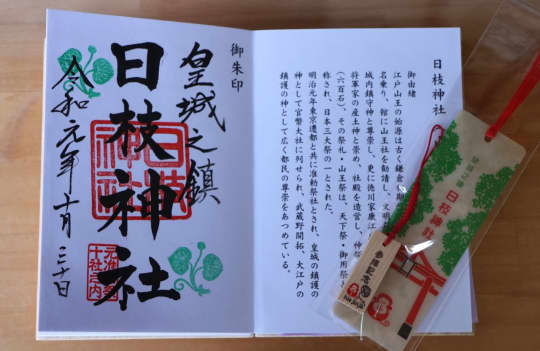 日枝神社
御由緒
江戸山王の始源は古く鎌倉期
名乗り、館に山王社を勧請し、文明
城内鎮守神と尊崇し、更に徳川家康江
将軍家の産土神と崇め、社殿を造営し、神
(六百石)、その祭礼・山王祭は、天下祭・御用祭と
称され、日本三大祭の一とされた。
明治元年東京遷都と共に准勅祭社とされ、皇城の鎮護の
神として官幣大社に列せられ、武蔵野開拓、大江戸の
鎮護の神として広く都民の尊崇をあつめている。
御朱印
皇城之鎮
日枝神社
日枝
神社
令和元年十月三十日
十社之内
日枝神社
参拝記念